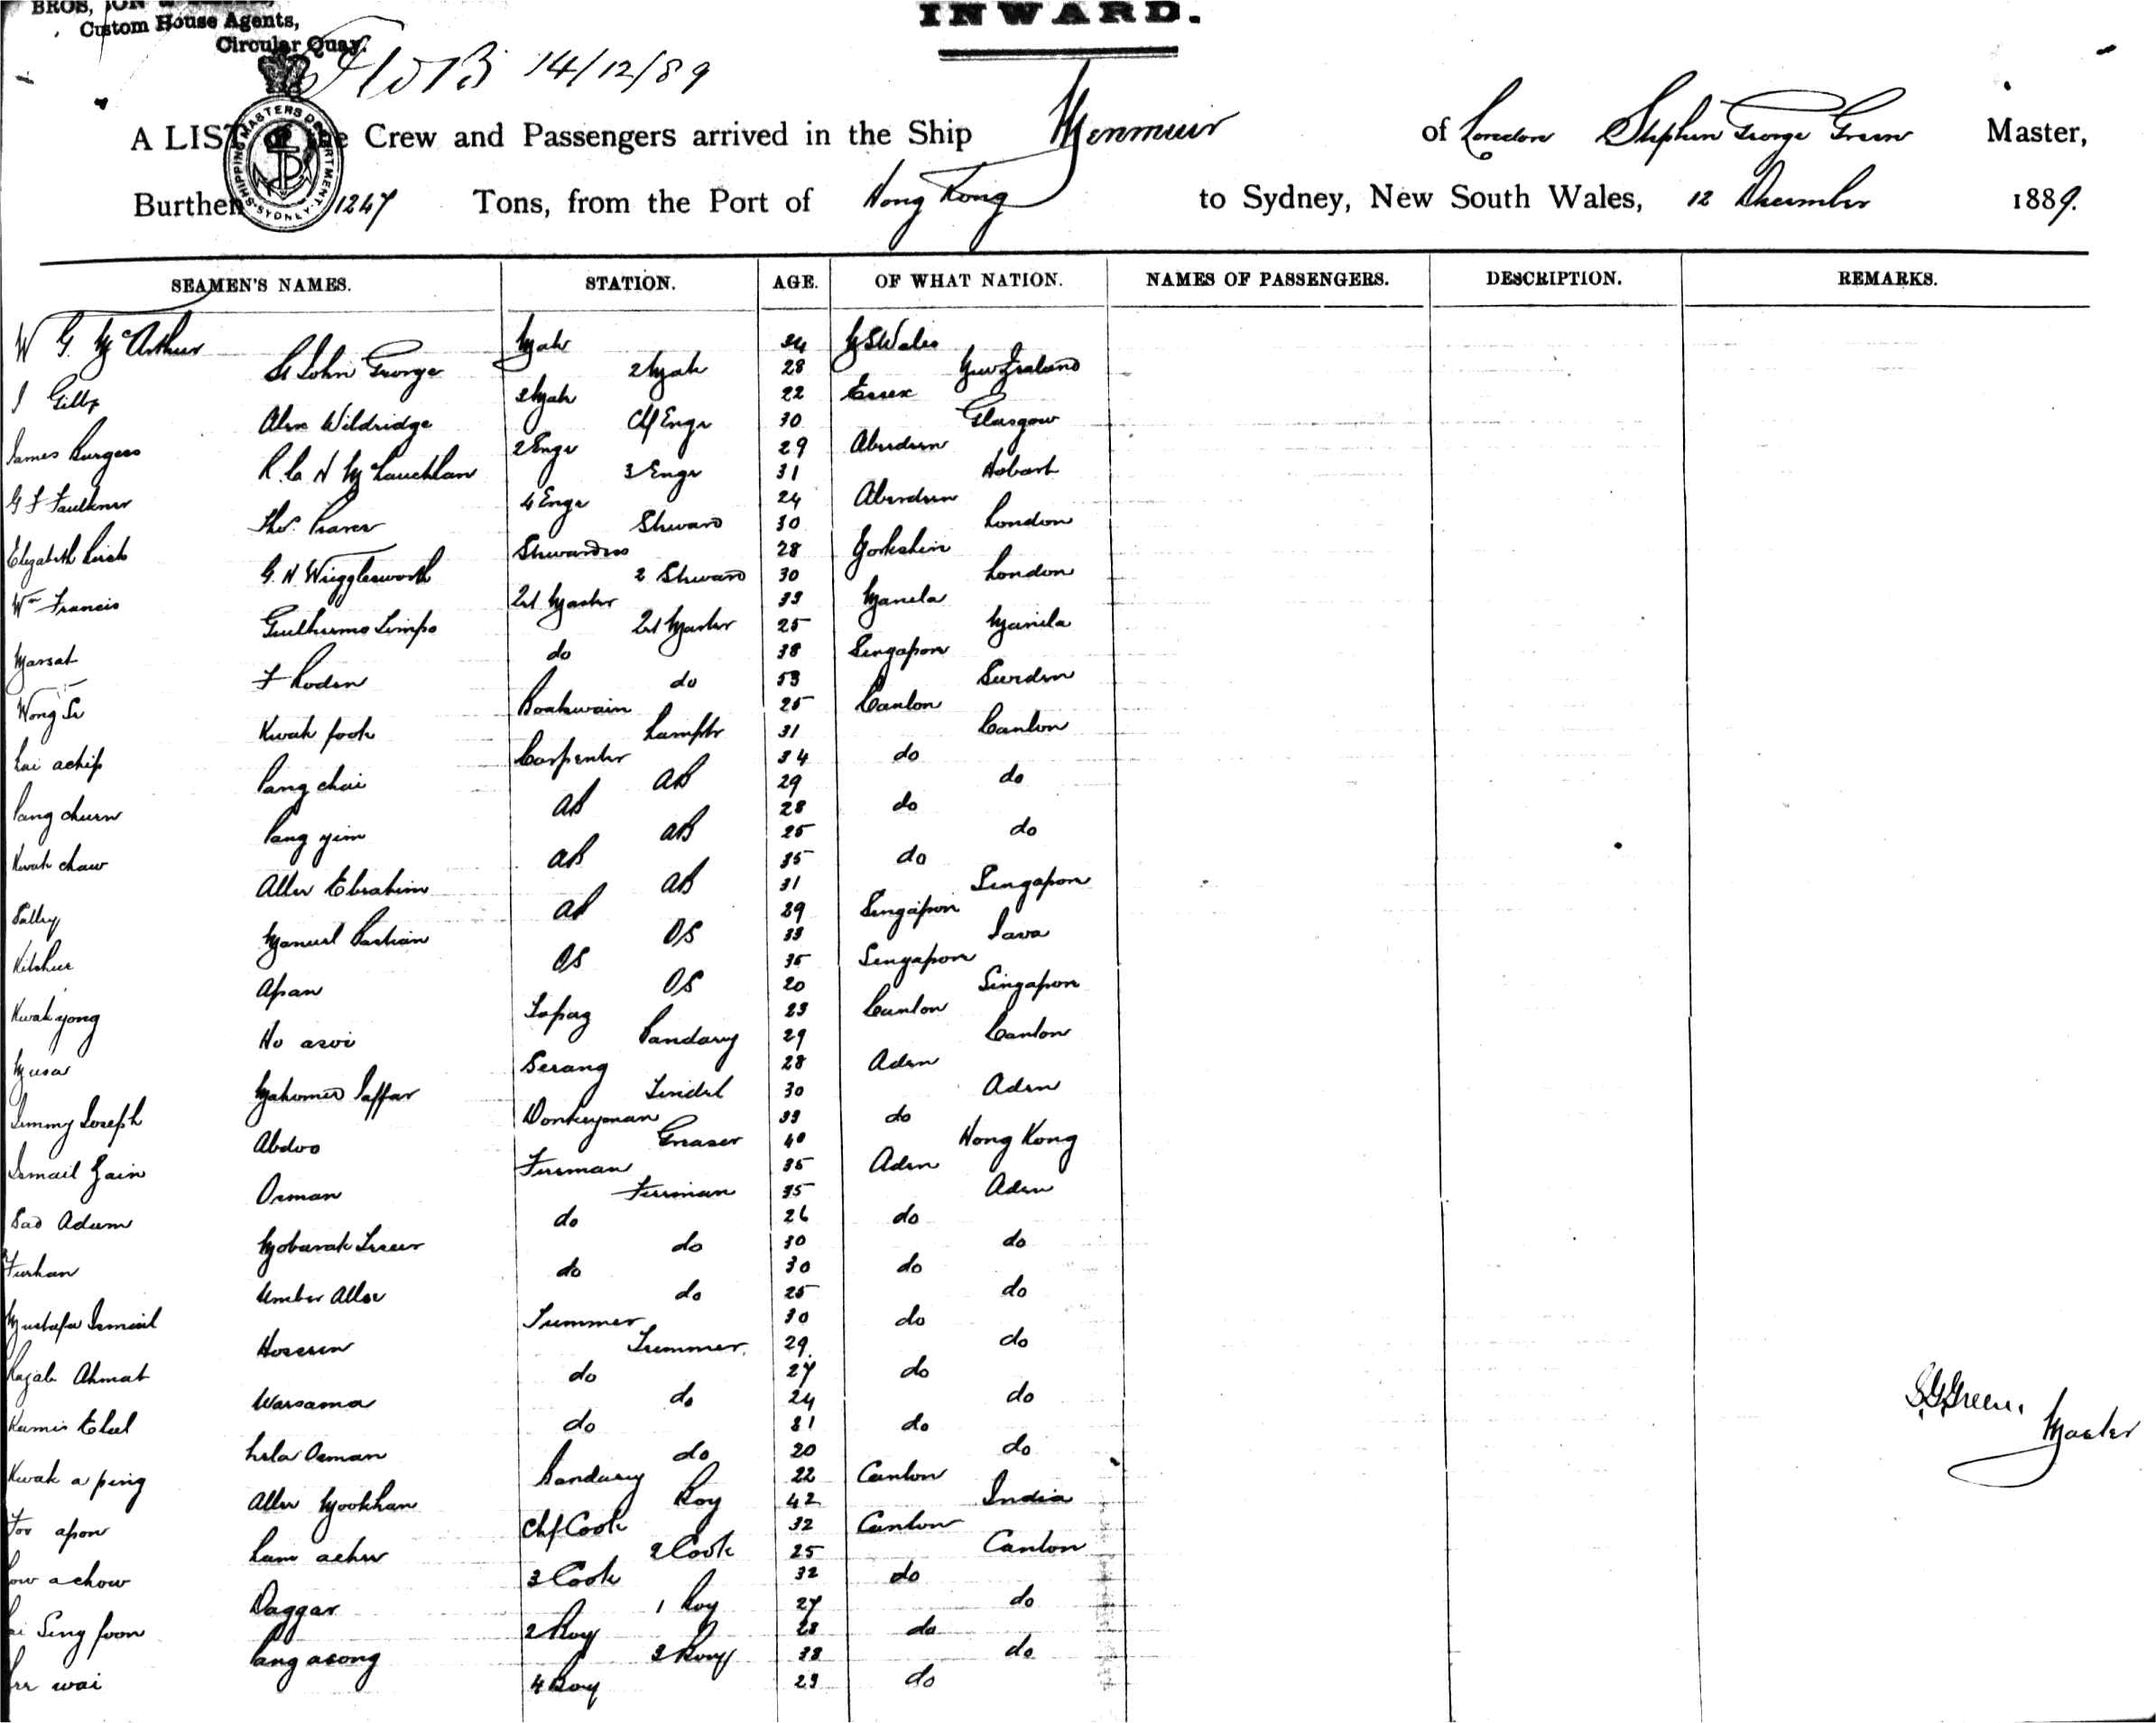 BROS,
Custom House Agents,
Circular Quay.
INWARD.
14/12/89
SHIPPING MASTERS DEPARTMENT SYDNEY
A LIST of the Crew and Passengers arrived in the Ship Menmuir of London Stephen George Green Master,
Burthen 1247 Tons, from the Port of Hong Kong to Sydney, New South Wales, 12 December 1889.
SEAMEN'S NAMES. STATION. AGE. OF WHAT NATION. NAMES OF PASSENGERS. DESCRIPTION. REMARKS.
W G. McArthur Mate 34 NSWales
St John George 2 Mate 28 New Zealand
Gibb 3 Mate 22 Essex
Alex Wildridge Cf Engr 30 Glasgow
James Burgess 2 Engr 29 Aberdeen
R. C. N McLauchlan 3 Engr 31 Hobart
G F Faulkner 4 Engr 24 Aberdeen
Thos. Steward 30 London
Elizabeth Stewardess 28 Yorkshire
G. N. Wigglesworth 2 Steward 30 London
Wm Francis Master 33 Manela
Guilhermo Limpo Master 25 Manila
Marsat do 38 Singapore
F Roden do 53 Sweden
Wong Boatswain 25 Canton
Kwak fook Lamptr 31 Canton
Lai achip Carpenter 34 do
Pang chai AB 29 do
Pang churn AB 28 do
Pang yim AB 25 do
Kwak chaw AB 35 do
Allee Ebrahim AB 31 Singapore
Salley AB 29 Singapore
Manuel Bastian OS 33 Java
OS 35 Singapore
Apan OS 20 Singapore
Kwak yong Topaz 23 Canton
Ho asoi Bandary 29 Canton
Musa Serang 28 Aden
Mahomed Jaffar Tindel 30 Aden
Jimmy Joseph Donkeyman 33 do
Abdoo Greaser 40 Hong Kong
Ismail Zain Fireman 35 Aden
Osman Fireman 35 Aden
Sad Adum do 26 do
Mobarak do 30 do
Furhan do 30 do
Umber Allee do 25 do
Mustafa Ismail Trimmer 30 do
Hoseen Trimmer. 29 do
Rajab Ahmat do 27 do
Warsama do 24 do
Kamis do 31 do
Osman do 20 do
Kwak a ping Bandary 22 Canton
Allee Mookhan Boy 42 India
apon Chf Cook 32 Canton
Lam achee 2 Cook 25 Canton
achow 3 Cook 32 do
Daggar 1 Boy 27 do
Sing foon 2 Boy 23 do
Pang asong 3 Boy 38 do
wai 4 Boy 23 do
S.G. Green.
Master